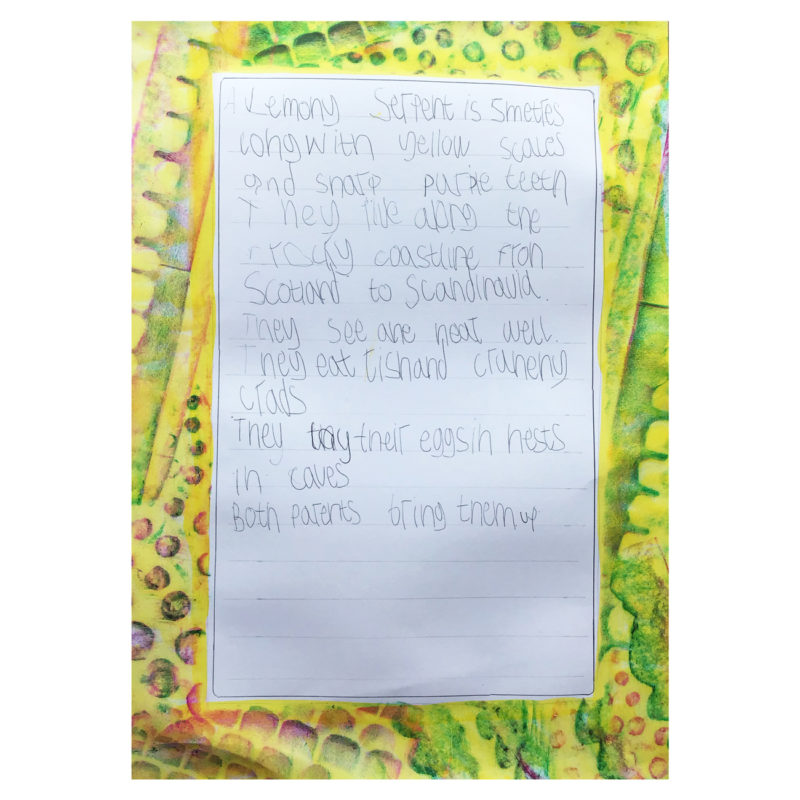 A Lemony Serpent is 5metres
long with yellow scales
and sharp purple teeth
They live along the
rrocky coastline fron
Scotland to Scandinavia.
They see and hear well.
They eat fish and crunchy
crabs
They lay their eggs in nests
in caves
Both parents bring them up